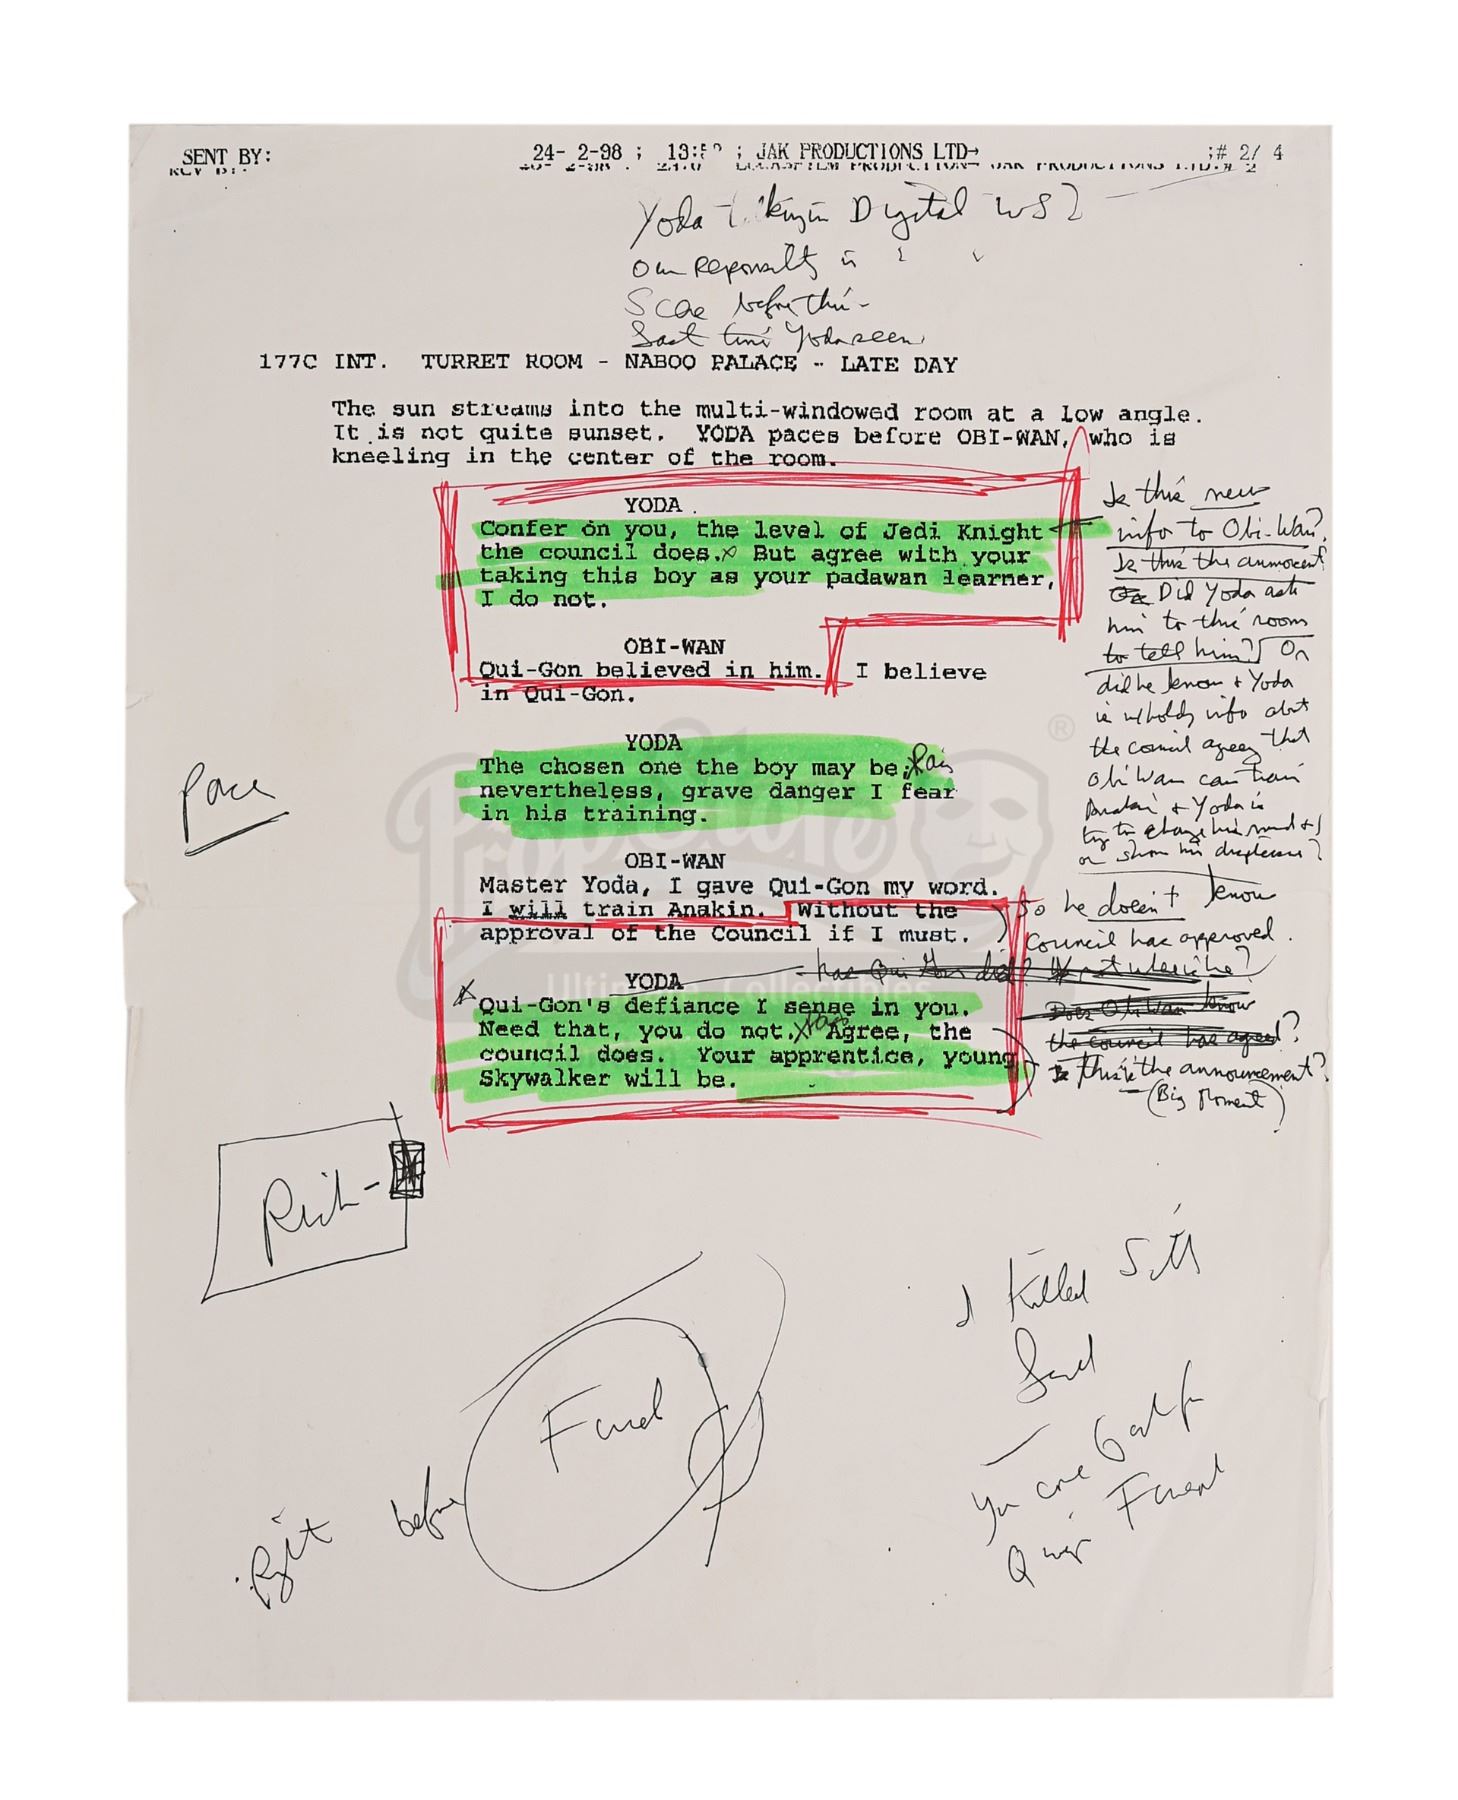 SENT BY: 24- 2-98 ; 13:5 ; JAK PRODUCTIONS LTD→ ;# 2/ 4
Yoda Digital
our
Scene before this
Last time Yoda seen
177C INT. TURRET ROOM - NABOO PALACE - LATE DAY
The sun streams into the multi-windowed room at a low angle.
It is not quite sunset. YODA paces before OBI-WAN, who is
kneeling in the center of the room.
YODA
Confer on you, the level of Jedi Knight
the council does. But agree with your
taking this boy as your padawan learner,
I do not.
OBI-WAN
Qui-Gon believed in him. I believe
in Qui-Gon.
Is this new
info to Obi-Wan?
Is this the
Did Yoda ask
him to this room
to tell him? Or
did he know + Yoda
is info
the council that
Obi Wan can train
+ Yoda is
to change his mind
or show his displeasure?
YODA
The chosen one the boy may be;
nevertheless, grave danger I fear
in his training.
Pace
OBI-WAN
Master Yoda, I gave Qui-Gon my word.
I will train Anakin. Without the
approval of the Council if I must.
So he doesn't know
Council has approved.
YODA
Qui-Gon's defiance I sense in you.
Need that, you do not. Agree, the
council does. Your apprentice, young
Skywalker will be.
has Qui Gon died?
Does Obi Wan know
the council has agreed?
Is this the announcement?
(Big Moment)
I Killed Sith
before
You come
Funeral
PropStore®
Ultimate Collectibles